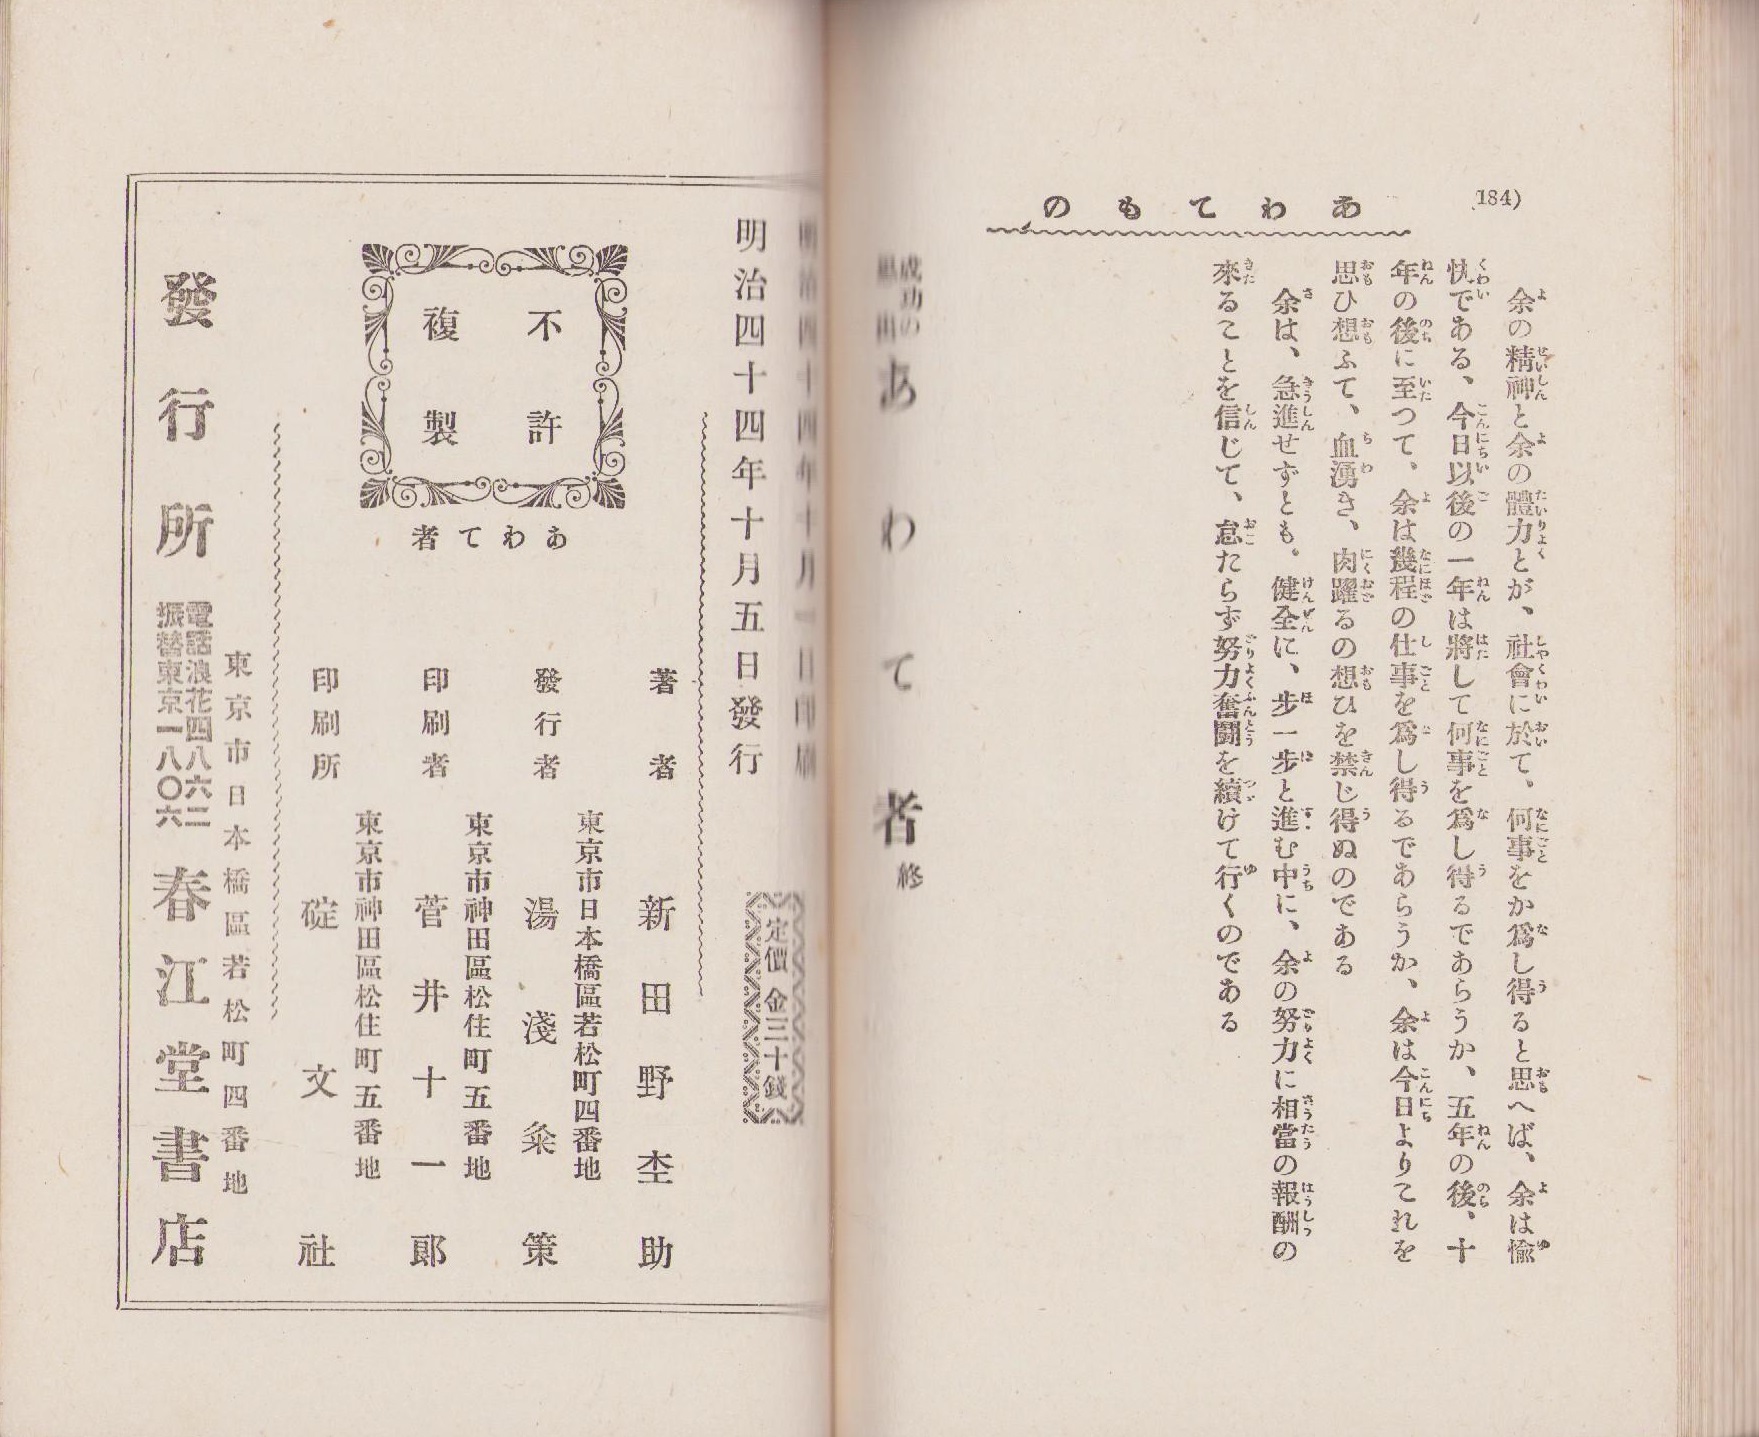 (184)
あわてもの
余の精神と余の體力とが、社會に於て、何事をか爲し得ると思へば、余は愉
快である、今日以後の一年は將して何事を爲し得るであらうか、五年の後、十
年の後に至つて、余は幾程の仕事を爲し得るであらうか、余は今日よりこれを
思ひ想ふて、血湧き、肉躍るの想ひを禁じ得ぬのである
余は、急進せずとも。健全に、步一步と進む中に、余の努力に相當の報酬の
來ることを信じて、怠たらず努力奮鬪を續けて行くのである
成功の
あわて者 終
明治四十四年十月一日印刷
明治四十四年十月五日發行
定價金三十錢
不許
複製
あわて者
著者 新田野杢助
東京市日本橋區若松町四番地
發行者 湯淺粂策
東京市神田區松住町五番地
印刷者 菅井十一郎
東京市神田區松住町五番地
印刷所 碇文社
東京市日本橋區若松町四番地
發行所 春江堂書店
電話浪花四八六二
振替東京一八〇六